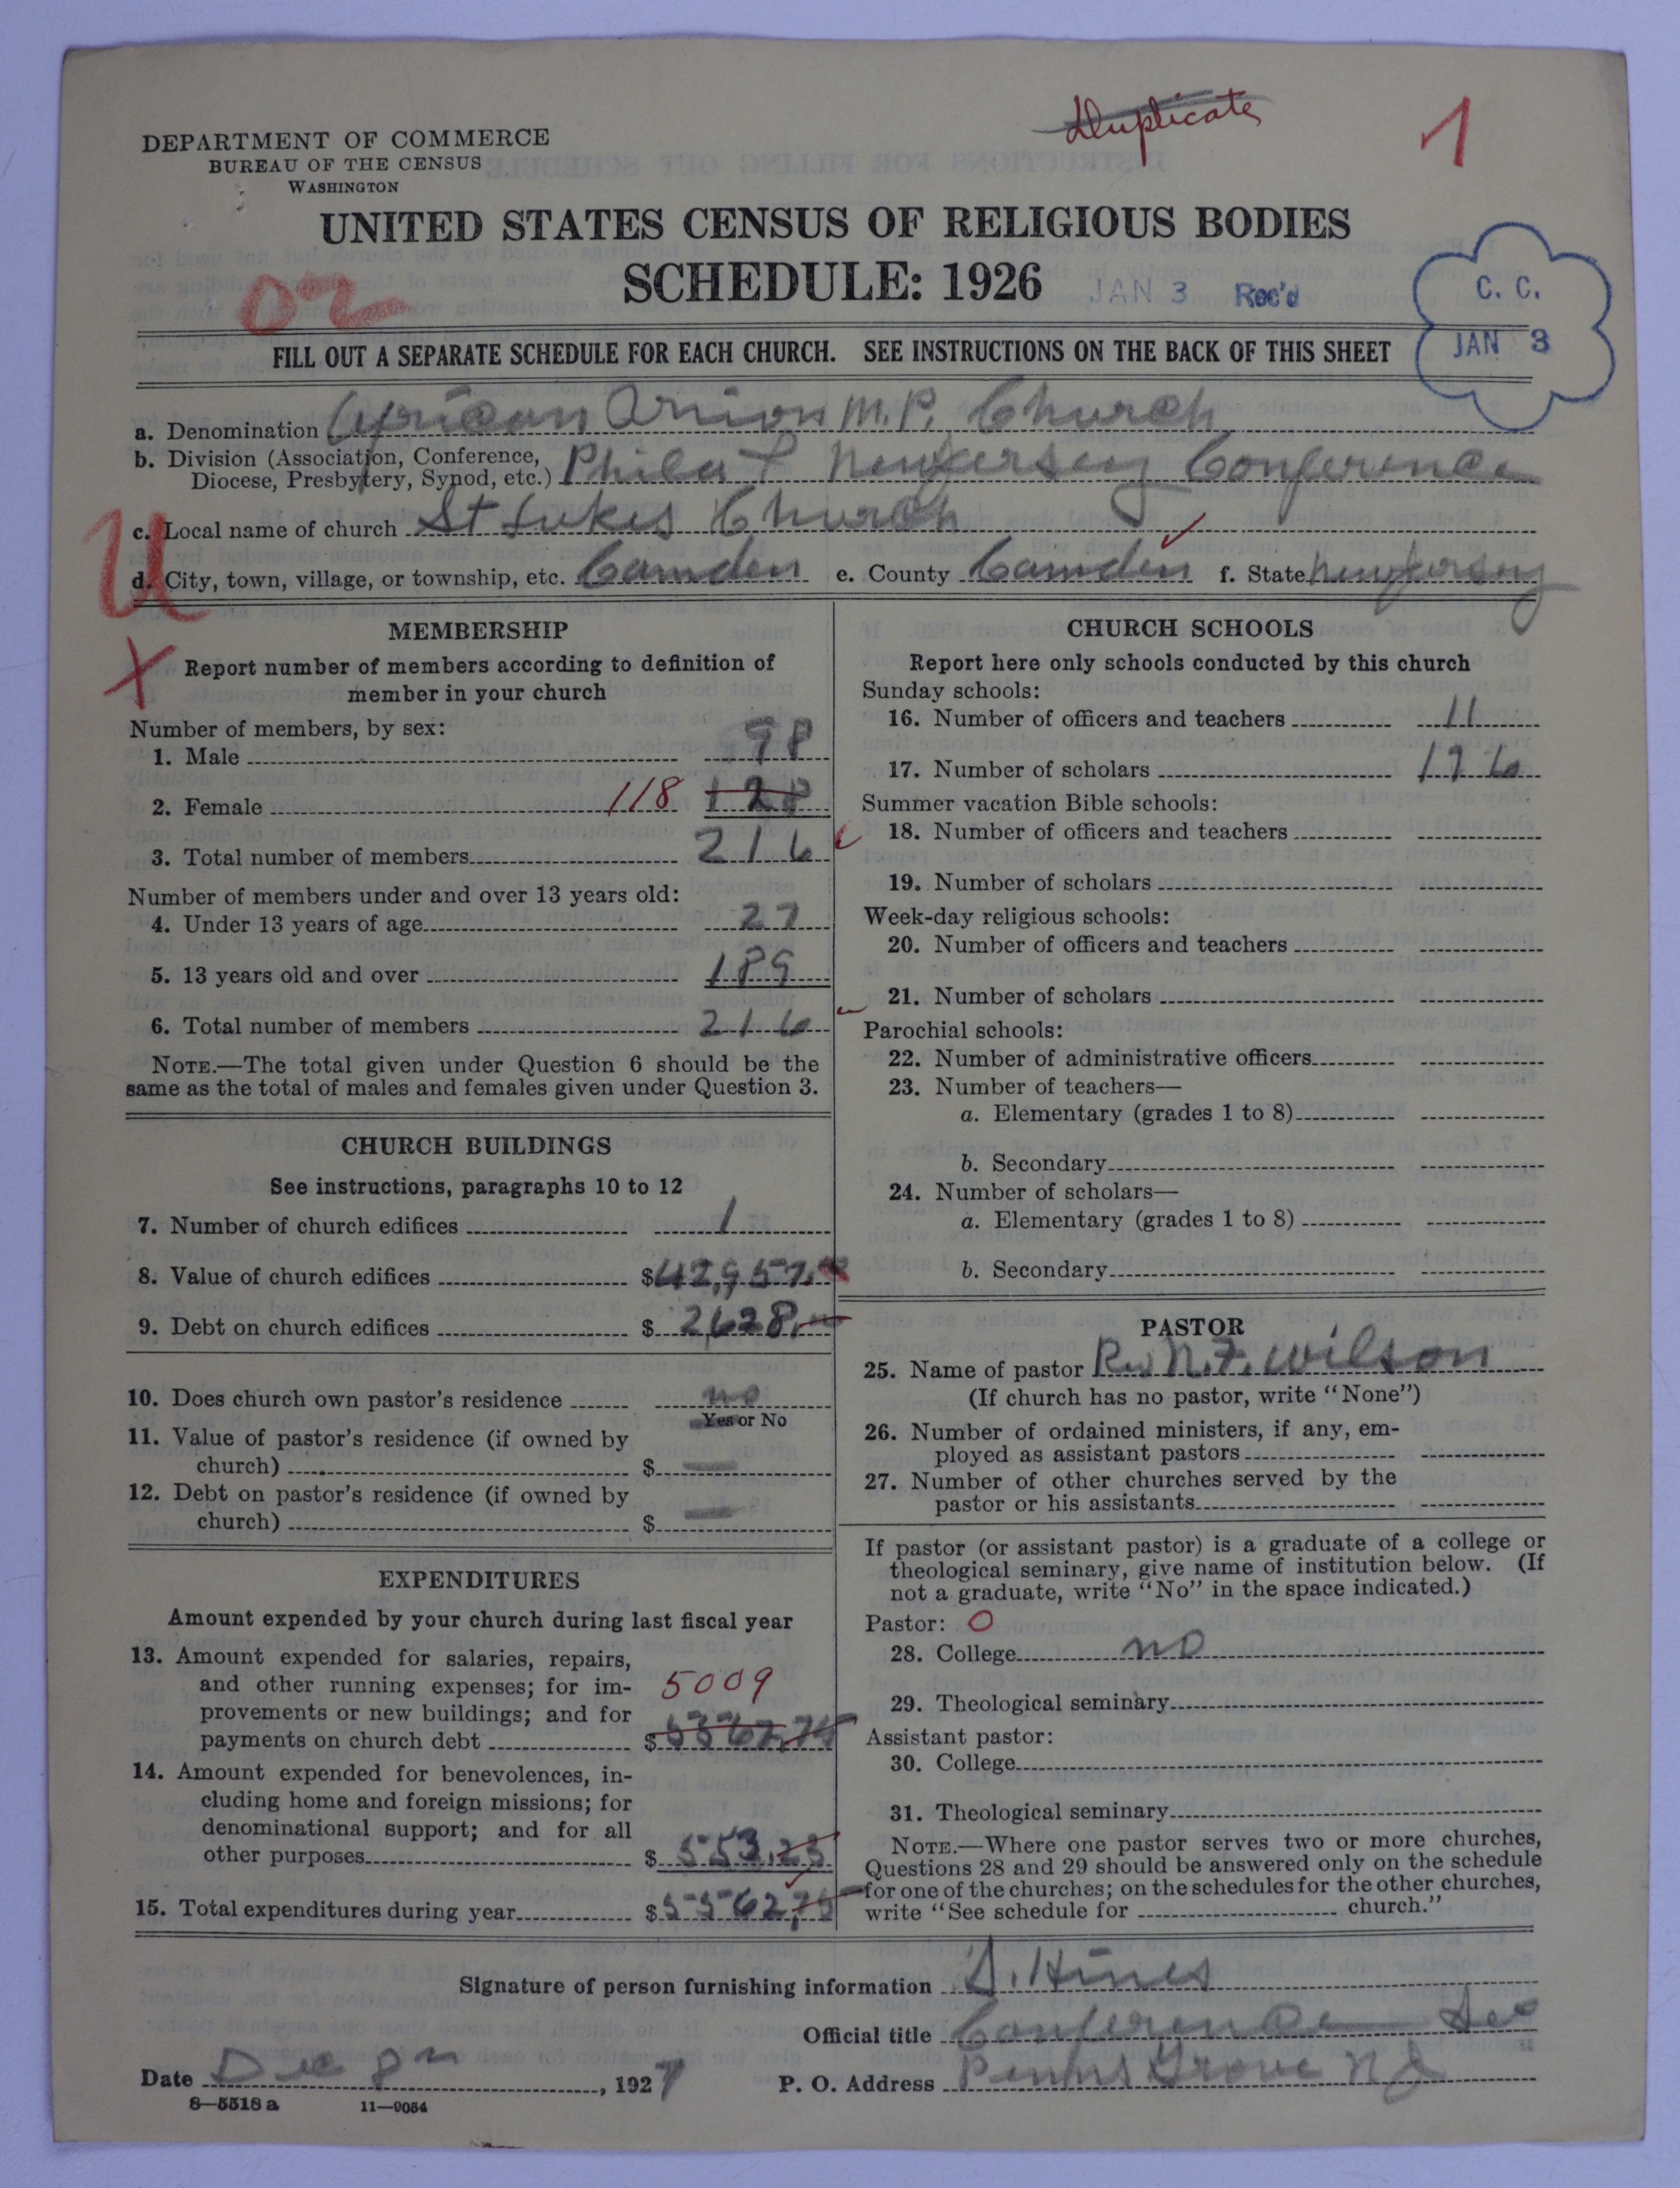 Duplicate
1
DEPARTMENT OF COMMERCE
BUREAU OF THE CENSUS
WASHINGTON
UNITED STATES CENSUS OF RELIGIOUS BODIES
SCHEDULE: 1926
JAN 3 Rec'd
C. C.
JAN 3
FILL OUT A SEPARATE SCHEDULE FOR EACH CHURCH. SEE INSTRUCTIONS ON THE BACK OF THIS SHEET
a. Denomination African Union M.P. Church
b. Division (Association, Conference,
Diocese, Presbytery, Synod, etc.) Phila & New Jersey Conference
U
c. Local name of church St Lukes Church
d. City, town, village, or township, etc. Camden e. County Camden f. State New Jersey
MEMBERSHIP
X
Report number of members according to definition of
member in your church
Number of members, by sex:
1. Male 98
2. Female 118 128
3. Total number of members 216
Number of members under and over 13 years old:
4. Under 13 years of age 27
5. 13 years old and over 189
6. Total number of members 216
NOTE.—The total given under Question 6 should be the
same as the total of males and females given under Question 3.
CHURCH BUILDINGS
See instructions, paragraphs 10 to 12
7. Number of church edifices 1
8. Value of church edifices $42,957.
9. Debt on church edifices $ 2628.
10. Does church own pastor's residence no
Yes or No
11. Value of pastor's residence (if owned by
church) $
12. Debt on pastor's residence (if owned by
church) $
EXPENDITURES
Amount expended by your church during last fiscal year
13. Amount expended for salaries, repairs,
and other running expenses; for im-
5009
provements or new buildings; and for
payments on church debt $
14. Amount expended for benevolences, in-
cluding home and foreign missions; for
denominational support; and for all
other purposes $ 553.25
15. Total expenditures during year $5562.75
CHURCH SCHOOLS
Report here only schools conducted by this church
Sunday schools:
16. Number of officers and teachers 11
17. Number of scholars 176
Summer vacation Bible schools:
18. Number of officers and teachers
19. Number of scholars
Week-day religious schools:
20. Number of officers and teachers
21. Number of scholars
Parochial schools:
22. Number of administrative officers
23. Number of teachers—
a. Elementary (grades 1 to 8)
b. Secondary
24. Number of scholars—
a. Elementary (grades 1 to 8)
b. Secondary
PASTOR
25. Name of pastor Rev N.F. Wilson
(If church has no pastor, write "None")
26. Number of ordained ministers, if any, em-
ployed as assistant pastors
27. Number of other churches served by the
pastor or his assistants
If pastor (or assistant pastor) is a graduate of a college or
theological seminary, give name of institution below. (If
not a graduate, write "No" in the space indicated.)
Pastor: O
28. College no
29. Theological seminary
Assistant pastor:
30. College
31. Theological seminary
NOTE.—Where one pastor serves two or more churches,
Questions 28 and 29 should be answered only on the schedule
for one of the churches; on the schedules for the other churches,
write "See schedule for church."
Signature of person furnishing information D. Hines
Official title Conference Sec
Date Dec 8th, 1927 P. O. Address Penns Grove N J
8—5518 a 11—9054